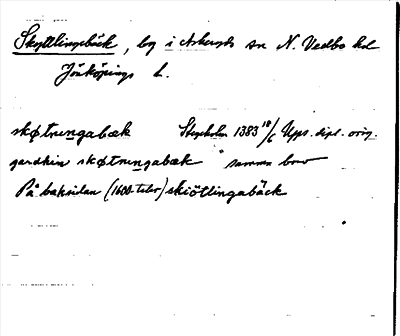 Skyttlingebäck, by i Askeryds sn N. Vedbo hd
Jönköpings l.
skøtrungabæk Stegeholm 1383 18/6 Upps. dipl. orig.
gardhin skøtrungabæk samma brev
På baksidan (1600-talet) skiötlingabäck